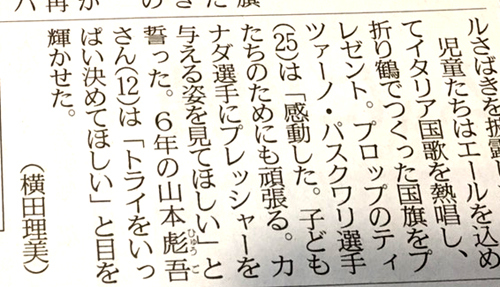 ルさばきを披露し
児童たちはエールを込め
てイタリア国歌を熱唱し、
折り鶴でつくった国旗をプ
レゼント。プロップのティ
ツァーノ・パスクワリ選手
(25)は「感動した。子ども
たちのためにも頑張る。カ
ナダ選手にプレッシャーを
与える姿を見てほしい」と
誓った。6年の山本彪吾
ひゅうご
さん(12)は「トライをいっ
ぱい決めてほしい」と目を
輝かせた。
(横田理美)